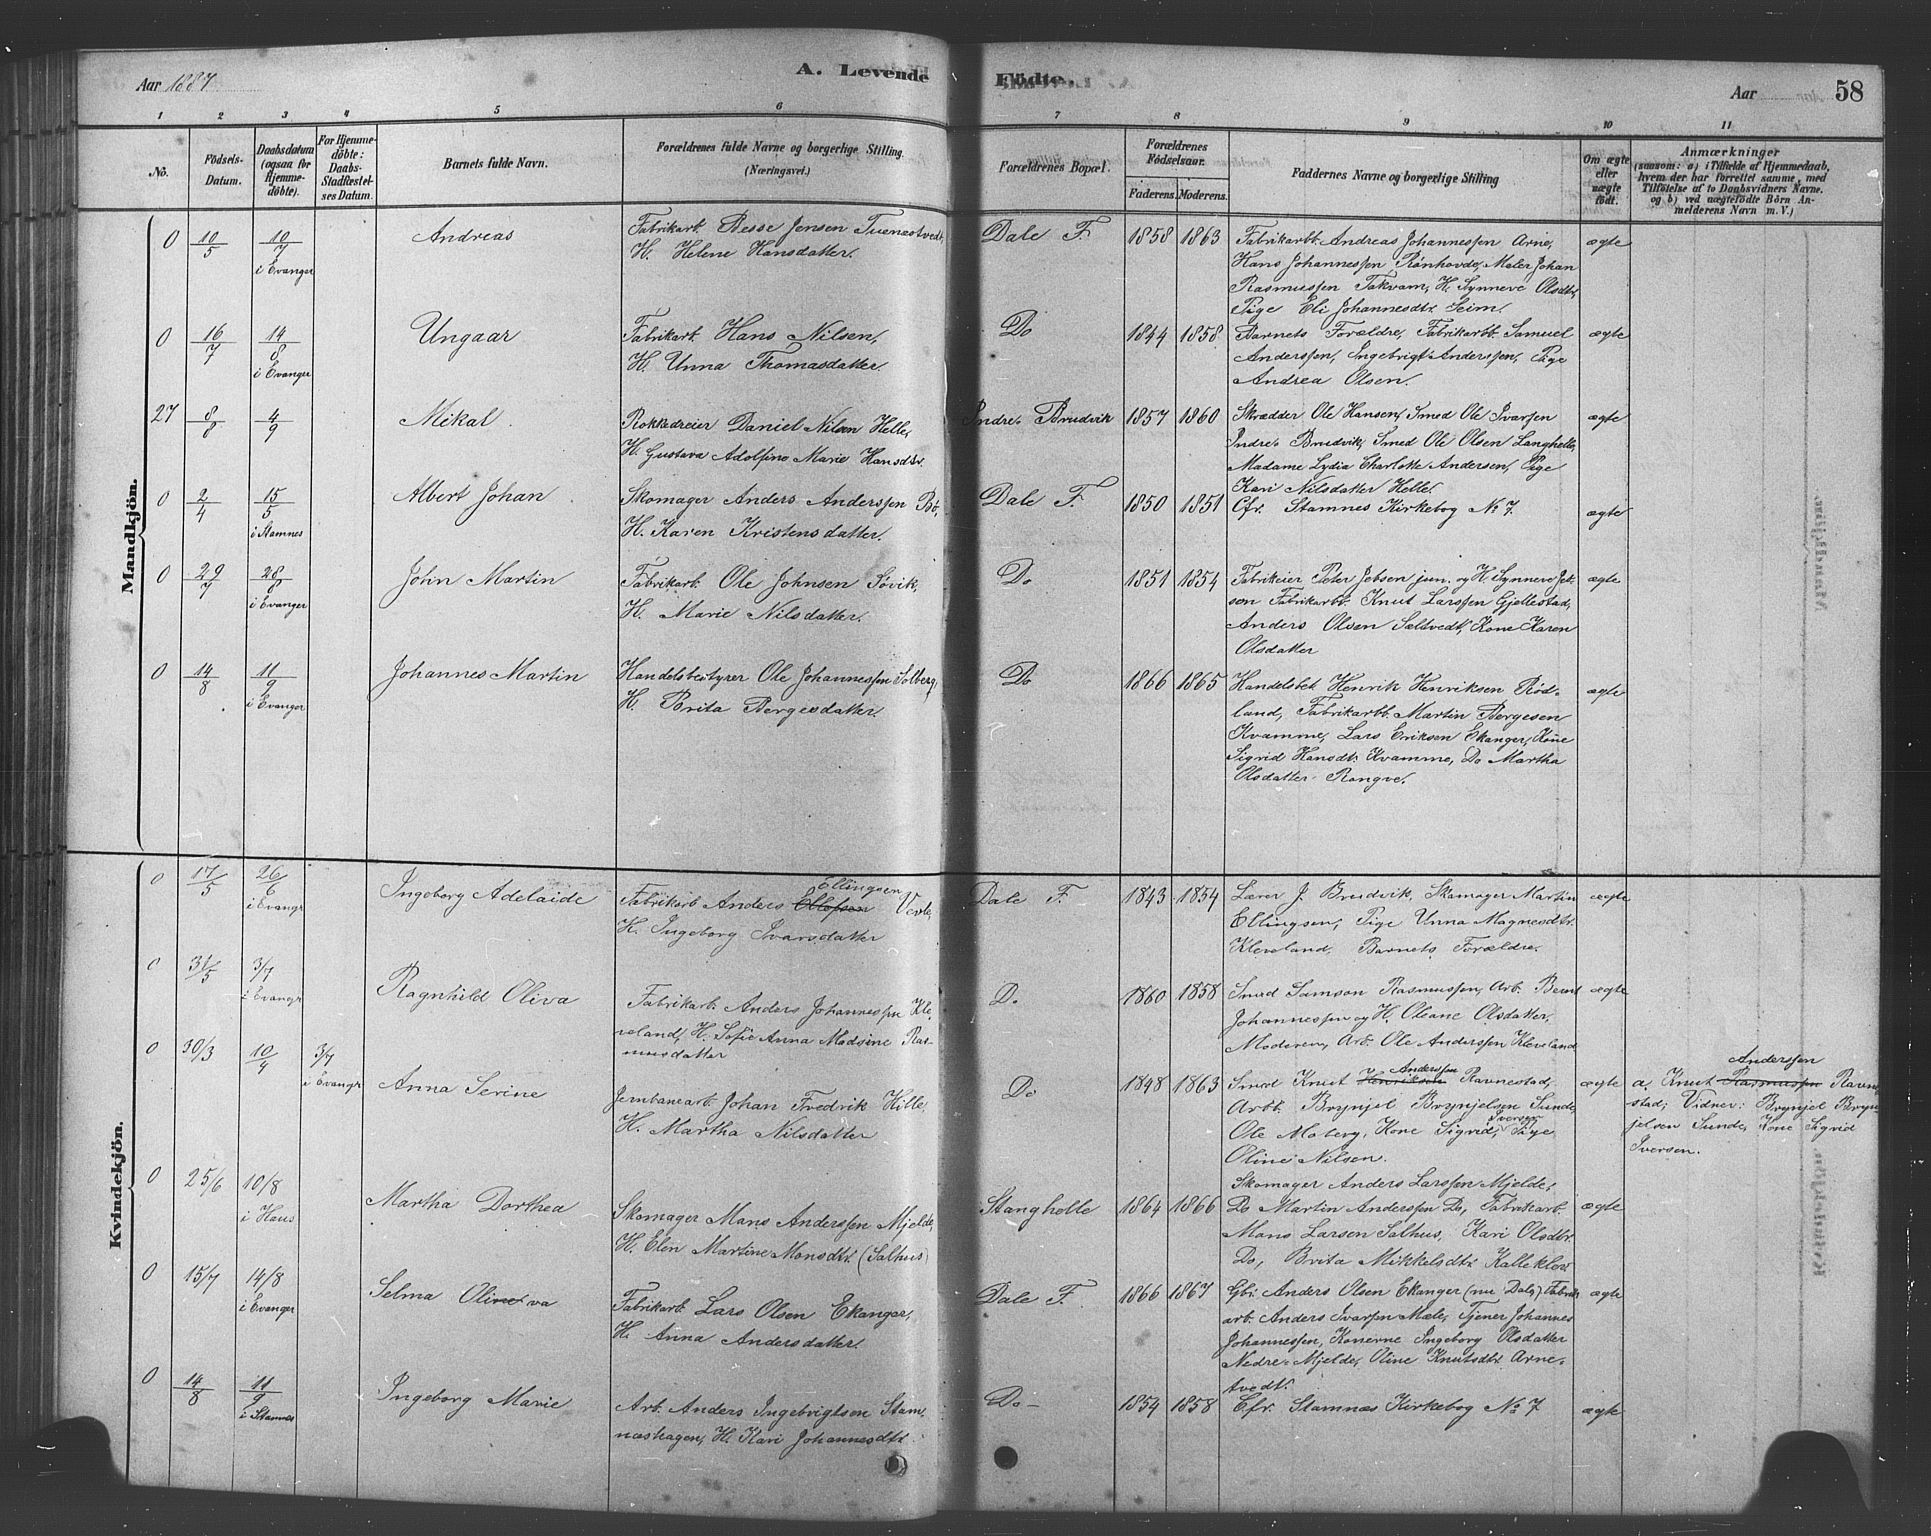 Aar 1887
A. Levende
Födte.
Aar
58
1 2 3 4 5 6 7 8 9 10 11
No.
Födsels-
Datum.
Daabsdatum
(ogsaa for
Hjemme-
döbte).
For Hjemme-
döbte:
Daabs-
Stadfæstel-
ses Datum.
Barnets fulde Navn.
Forældrenes fulde Navne og borgerlige Stilling
(Næringsvei.)
Forældrenes Bopæl.
Forældrenes
Födselsaar.
Faderens. Moderens.
Faddernes Navne og borgerlige Stilling
Om ægte
eller
uægte
födt.
Anmærkninger
(saasom: a) i Tilfælde af Hjemmedaab,
hvem der har forrettet samme, med
Tilföielse af to Daabsvidners Navne,
og b) ved uægtefödte Börn An-
melderens Navn m. V.)
Mandkjön.
0 10/5 10/7 i Evanger
Andreas
Fabrikarb. Besse Jensen
H. Helene Hansdatter.
Dale F. 1858 1863
Fabrikarbb. Andreas Johannessen Arne,
Hans Johannessen Rønhovde, Maler Johan
Rasmussen Takvam, H. Synneve Olsdtr,
Pige Eli Johannesdtr. Seim.
ægte
0 16/7 14/8 i Evanger
Ungaar
Fabrikarb. Hans Nilsen,
H. Unna Thomasdatter.
Do 1844 1858
Barnets Forældre, Fabrikarbb. Samuel
Anderssen, Engebrigt Anderssen, Pige
Andrea Olsen.
ægte
27 8/8 4/9
Mikal
Rokkedreier Daniel Nilsen Helle,
H. Gustava Adolfine Marie Hansdtr.
Indre Brudvik 1857 1860
Skrædder Ole Hansen, Smed Ole Ivarsen
Indre Brudvik, Smed Ole Olsen Langhelle,
Madame Lydia Charlotte Andersen, Pige
Kari Nilsdatter Helle.
ægte
0 2/4 15/5 i Stamnes
Albert Johan
Skomager Anders Anderssen Bø,
H. Karen Kristensdatter.
Dale F. 1850 1851
Cfr. Stamnes Kirkebog No 7.
ægte
0 29/7 28/8 i Evanger
John Martin
Fabrikarb. Ole Johnsen Søvik,
H. Marie Nilsdatter.
Do 1851 1854
Fabrikeier Peter Jebsen jun. og H. Synneve Jeb-
sen Fabrikarbb. Knut Larssen Gjellestad,
Anders Olsen Sæltvedt, Kone Karen
Olsdatter
ægte
0 14/8 11/9 i Evanger
Johannes Martin
Handelsbestyrer Ole Johannessen Solberg,
H. Brita Bergesdatter.
Do 1866 1865
Handelsbet. Henrik Henriksen Rød-
land, Fabrikarbb. Martin Bergesen
Kvamme, Lars Eriksen Ekanger, Kone
Sigrid Hansdtr. Kvamme, Do Martha
Olsdatter Rongve.
ægte
Kvindekjön.
0 17/5 26/6 i Evangr
Ingeborg Adelaide
Ellingsen
Fabrikarb Anders Ellefsen Vevle,
H. Ingeborg Ivarsdatter
Dale F. 1843 1854
Lærer J. Brudvik, Skomager Martin
Ellingsen, Pige Unna Magnesdtr.
Kleveland, Barnets Forældre.
ægte
0 31/5 3/7 i Evangr
Ragnhild Oliva
Fabrikarb. Anders Johannessen Kle-
veland, H. Sofie Anna Madsine Ras-
musdatter
Do 1860 1858
Smed Samson Rasmussen, Arb. Bernt
Johannessen og H. Oleane Olsdatter,
Moderen, Arb. Ole Anderssen Kleveland
ægte
0 30/3 10/4 3/7 i Evangr
Anna Serine
Jernbanearb. Johan Fredrik Hille
H. Martha Nilsdatter
Do 1848 1863
Anderssen
Smed Knut Henriksen Ravnestad,
Arbb. Brynjel Brynjelsen Sunde,
Iversen
Ole Moberg, Kone Sigrid, Pige
Oline Nilsen.
ægte
Anderssen
a. Knut Rasmussen Ravne-
stad; Vidner: Brynjel Bryn-
jelsen Sunde, Kone Sigrid
Iversen.
0 25/6 10/8 i Haus
Martha Dorthea
Skomager Mons Anderssen Mjelde,
H. Elen Martine Monsdtr. (Salhus)
Stanghelle 1864 1866
Skomager Anders Larssen Mjelde,
Do Martin Anderssen Do, Fabrikarb.
Mons Larsen Salhus, Kari Olsdtr.
Do, Brita Mikkelsdtr. Kalleklev
ægte
0 15/7 14/8 i Evanger
Selma Olineva
Fabrikarb. Lars Olsen Ekanger,
H. Anna Andersdatter.
Dale F. 1866 1867
Gbr. Anders Olsen Ekanger (nu Dale) Fabrik-
arb. Anders Ivarssen Mæle, Tjener Johannes
Johannessen, Konerne Ingeborg Olsdatter
Nedre-Mjelde, Oline Knutsdtr. Arne-
tvedt.
ægte
0 14/8 11/9 i Stamnes
Ingeborg Marie
Arb. Anders Ingebrigtsen Stam-
neshagen, H. Kari Johannesdtr.
Do 1854 1858
Cfr. Stamnæs Kirkebog No 7
ægte